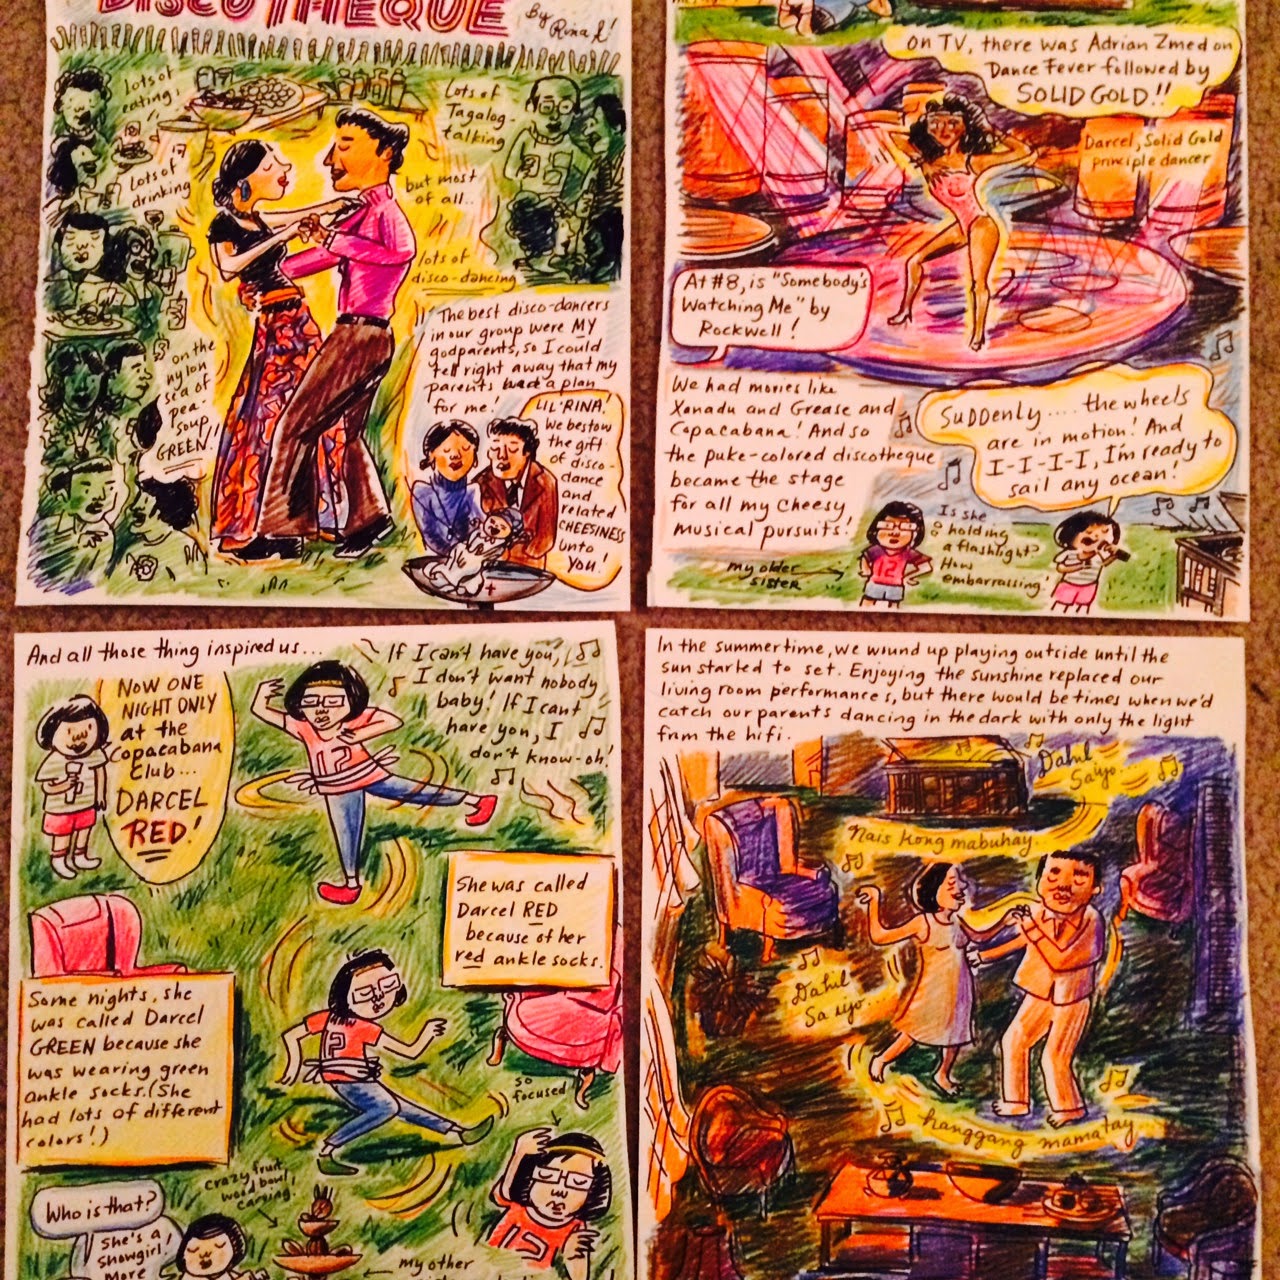 DISCOTHEQUE
By
Rina A!
lots of
eating,
Lots of
drinking
Lots of
Tagalog-
talking
but most
of all..
lots of
disco-dancing
on the
nylon
sea of
pea-
soup
GREEN!!
The best disco-dancers
in our group were MY
godparents, so I could
tell right away that my
parents had a plan
for me!
LIL' RINA!
We bestow
the gift
of disco-
dance
and
related
CHEESINESS
unto
you!
On TV, there was Adrian Zmed on
Dance Fever followed by
SOLID GOLD!!
Darcel, Solid Gold
principle dancer
At #8, is "Somebody's
Watching Me" by
Rockwell!
We had movies like
Xanadu and Grease and
Copacabana! And so
the puke-colored discotheque
became the stage
for all my cheesy
musical pursuits!
Suddenly.... the wheels
are in motion! And
I-I-I-I, I'm ready to
sail any ocean!
my older
sister
Is she
holding
a flashlight?
How
embarrassing!
And all those thing inspired us...
NOW ONE
NIGHT ONLY
at the
Copacabana
Club...
DARCEL
RED!
If I can't have you,
I don't want nobody,
baby! If I can't
have you, I
don't know-oh!
She was called
Darcel RED
because of her
red ankle socks.
Some nights, she
was called Darcel
GREEN because she
was wearing green
ankle socks. (She
had lots of different
colors!)
so
focused
crazy fruit
wood bowl
carving.
Who is that?
She's a
showgirl!
More
my other
In the summertime, we wound up playing outside until the
sun started to set. Enjoying the sunshine replaced our
living room performances, but there would be times when we'd
catch our parents dancing in the dark with only the light
from the hifi.
Dahil
Saiyo...
Nais kong mabuhay.
Dahil
Sa iyo...
hanggang mamatay